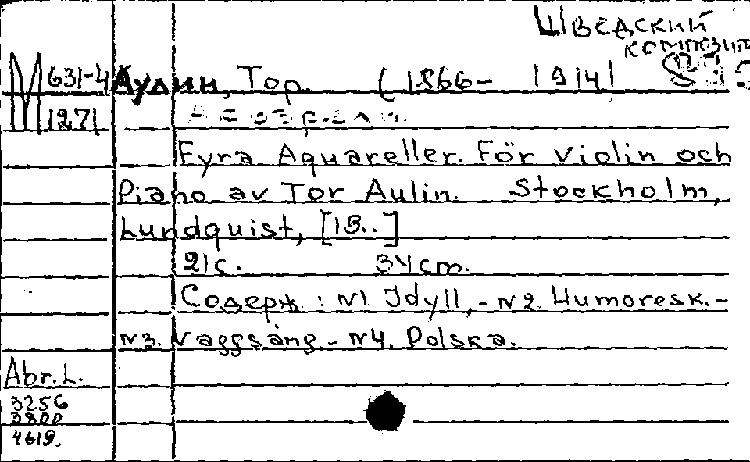 Шведский
композит
М 631-4 Аулин, Тор. (1866-1914)
1271 Акварели.
Fyra Aquareller. För violin och
Piano av Tor Aulin. Stockholm,
Lundquist, [18..]
21 с. 34 cm.
Содерж: N1. Idyll, - N2. Humoresk. -
N3. Vaggsång - N4. Polska.
Abr. L.
3256
3800
4619.